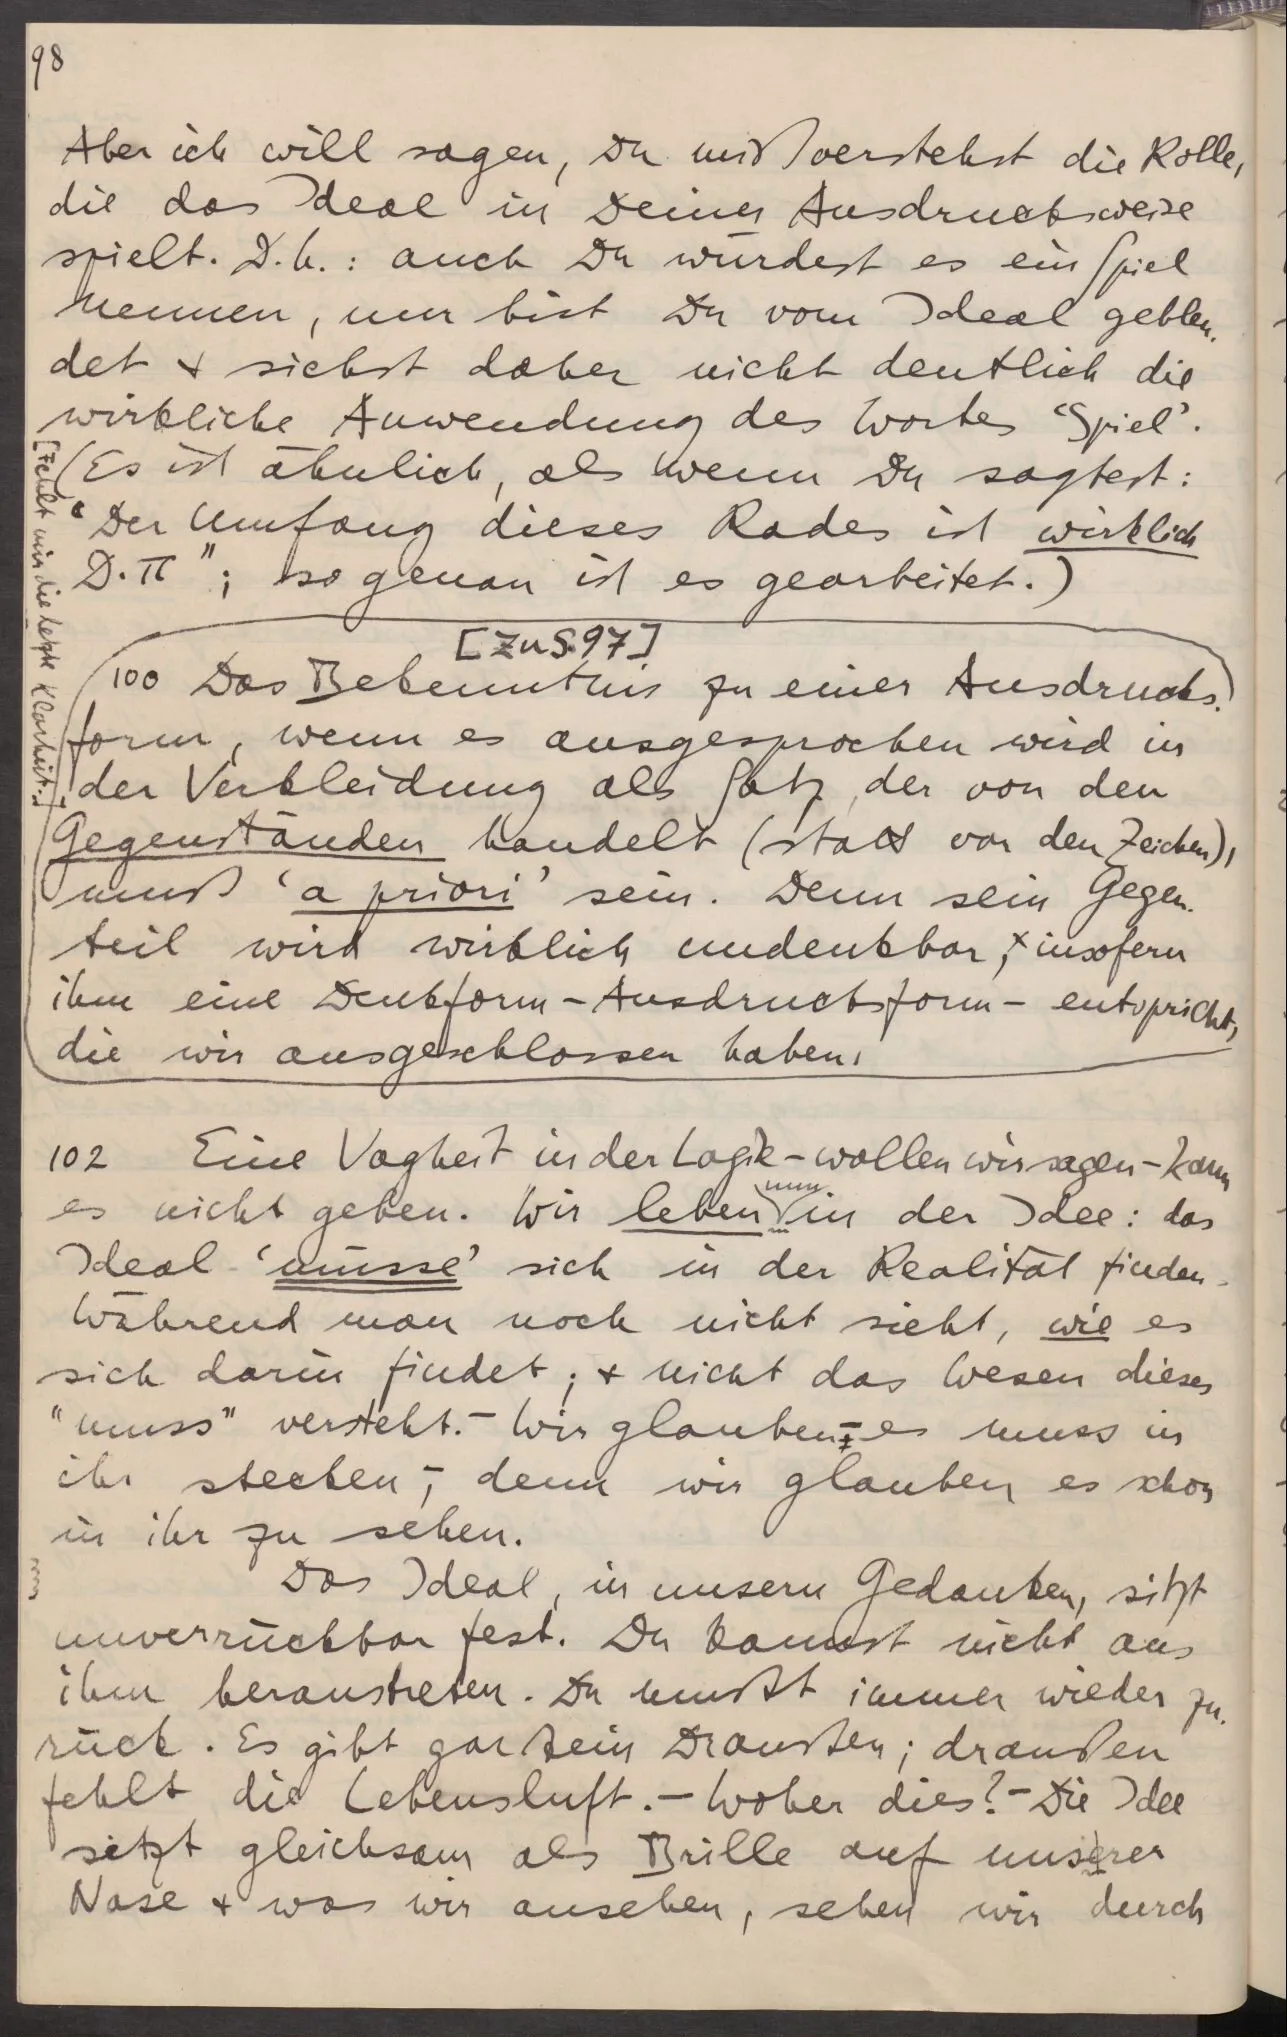 98
Aber ich will sagen, Du mißverstehst die Rolle,
die das Ideal in Deiner Ausdrucksweise
spielt. D.h.: auch Du würdest es ein Spiel
nennen, nur bist Du vom Ideal geblen-
det & siehst daher nicht deutlich die
wirkliche Anwendung des Wortes ‘Spiel’.
(Es ist ähnlich, als wenn Du sagtest:
“Der Umfang dieses Rades ist wirklich
D.π”; so genau ist es gearbeitet.)
[Fehlt mir die letzte Klarheit.]
[Zu S.97]
100 Das Bekenntnis zu einer Ausdrucks-
form, wenn es ausgesprochen wird in
der Verkleidung als Satz, der von den
Gegenständen handelt (statt von den Zeichen),
muß ‘a priori’ sein. Denn sein Gegen-
teil wird wirklich undenkbar, insofern
ihm eine Denkform – Ausdrucksform – entspricht,
die wir ausgeschlossen haben.
102 Eine Vagheit in der Logik – wollen wir sagen – kann
es nicht geben. Wir leben nun in der Idee: das
Ideal ‘müsse’ sich in der Realität finden.
Während man noch nicht sieht, wie es
sich darin findet, & nicht das Wesen dieses
“muss” versteht. – Wir glauben: es muss in
ihr stecken; denn wir glauben es schon
in ihr zu sehen.
Das Ideal, in unsern Gedanken, sitzt
unverrückbar fest. Du kannst nicht aus
ihm heraustreten. Du mußt immer wieder zu-
rück. Es gibt gar kein Draußen; draußen
fehlt die Lebensluft. – Woher dies? – Die Idee
sitzt gleichsam als Brille auf unsrer
Nase & was wir ansehen, sehen wir durch